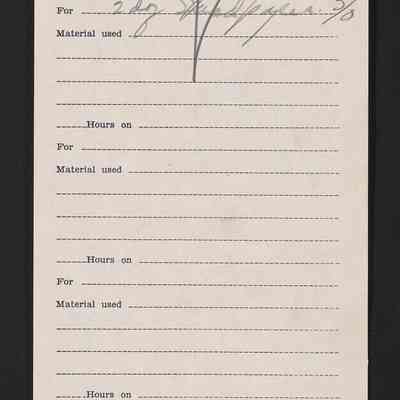 For 2 doz Sandpaper 3/0
Material used
Hours on
For
Material used
Hours on
For
Material used
Hours on